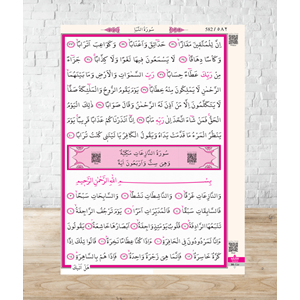 سُورَةُ النَّبَأِ
اِنَّ لِلْمُتَّقِينَ مَفَازًا حَدَائِقَ وَاَعْنَابًا وَكَوَاعِبَ اَتْرَابًا
وَكَأْسًا دِهَاقًا لَا يَسْمَعُونَ فِيهَا لَغْوًا وَلَا كِذَّابًا جَزَاءً
مِنْ رَبِّكَ عَطَاءً حِسَابًا رَبِّ السَّمٰوَاتِ وَالْاَرْضِ وَمَا بَيْنَهُمَا
الرَّحْمٰنِ لَا يَمْلِكُونَ مِنْهُ خِطَابًا يَوْمَ يَقُومُ الرُّوحُ وَالْمَلٰئِكَةُ صَفًّا
لَا يَتَكَلَّمُونَ اِلَّا مَنْ اَذِنَ لَهُ الرَّحْمٰنُ وَقَالَ صَوَابًا ذٰلِكَ الْيَوْمُ
الْحَقُّ فَمَنْ شَاءَ اتَّخَذَ اِلٰى رَبِّهِ مَاٰبًا اِنَّا اَنْذَرْنَاكُمْ عَذَابًا قَرِيبًا يَوْمَ
يَنْظُرُ الْمَرْءُ مَا قَدَّمَتْ يَدَاهُ وَيَقُولُ الْكَافِرُ يَا لَيْتَنِي كُنْتُ تُرَابًا
سُورَةُ النَّازِعَاتِ مَكِّيَّةٌ
وَهِيَ سِتٌّ وَاَرْبَعُونَ اٰيَةً
بِسْمِ اللّٰهِ الرَّحْمٰنِ الرَّحِيمِ
وَالنَّازِعَاتِ غَرْقًا وَالنَّاشِطَاتِ نَشْطًا وَالسَّابِحَاتِ سَبْحًا
فَالسَّابِقَاتِ سَبْقًا فَالْمُدَبِّرَاتِ اَمْرًا يَوْمَ تَرْجُفُ الرَّاجِفَةُ
تَتْبَعُهَا الرَّادِفَةُ قُلُوبٌ يَوْمَئِذٍ وَاجِفَةٌ اَبْصَارُهَا خَاشِعَةٌ يَقُولُونَ
ءَاِنَّا لَمَرْدُودُونَ فِي الْحَافِرَةِ ءَاِذَا كُنَّا عِظَامًا نَخِرَةً قَالُوا تِلْكَ اِذًا
كَرَّةٌ خَاسِرَةٌ فَاِنَّمَا هِيَ زَجْرَةٌ وَاحِدَةٌ فَاِذَا هُمْ بِالسَّاهِرَةِ
هَلْ اَتٰيكَ